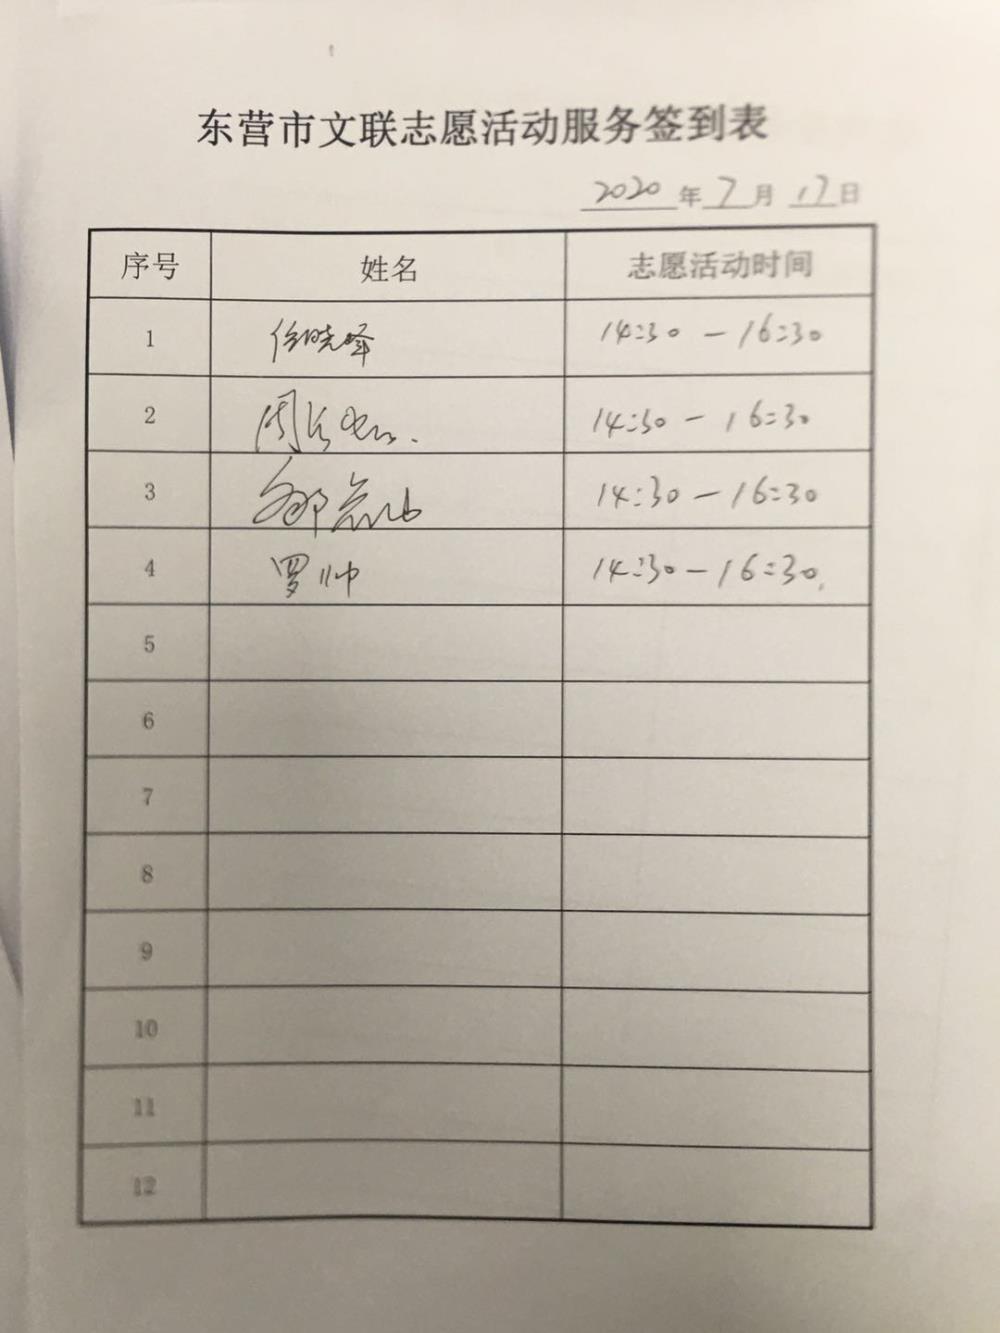 东营市文联志愿活动服务签到表
2020年7月17日
序号 姓名 志愿活动时间
1 任晓峰 14:30－16:30
2 周 14:30－16:30
3 14:30－16:30
4 罗帅 14:30－16:30
5
6
7
8
9
10
11
12